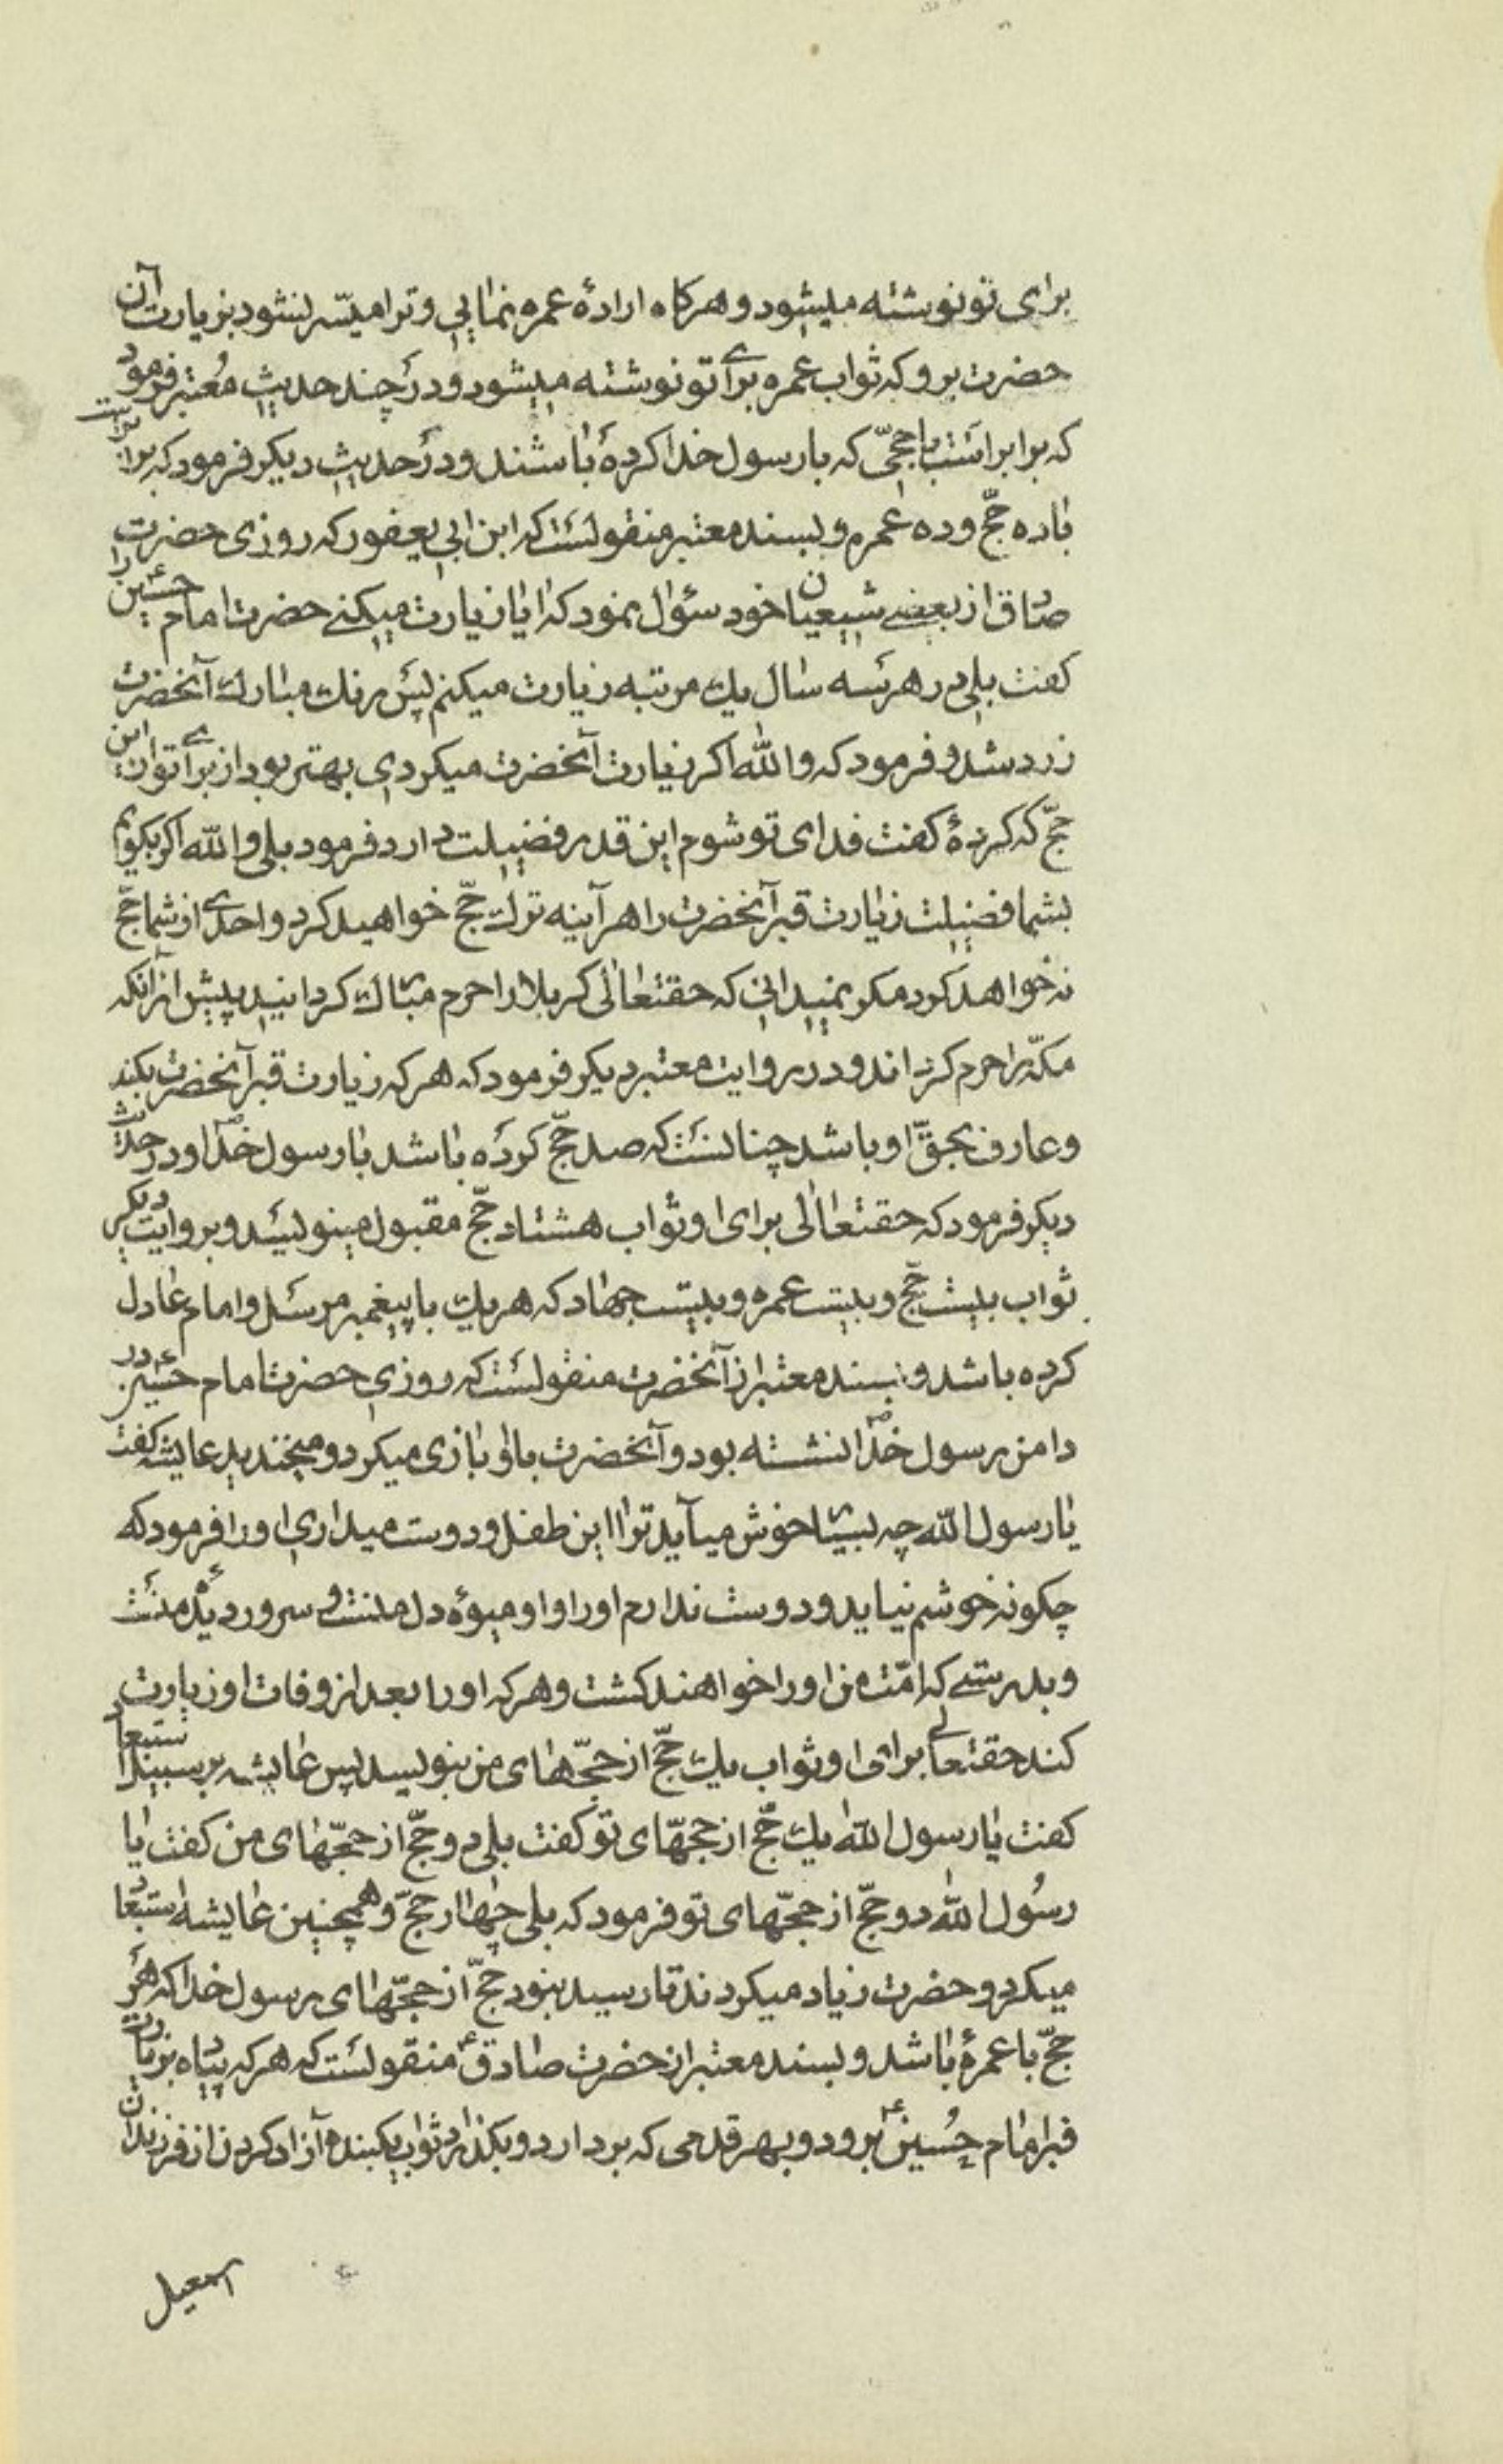 برای تو نوشته میشود و هرکاه ارادهٔ عمره نمایی و ترا میسّر نشود بزیارت آن
حضرت برو که ثواب عمره برای تو نوشته میشود و در چند حدیث مُعتبر فرمود
که برابر است با حجّی که با رسول خدا کردهٔ باشند و در حدیث دیکر فرمود که برابر است
با ده حجّ و ده عمره و بسند معتبر منقولست که ابن ابی یعفور که روزی حضرت
صادق از بعضے شیعیان خود سؤال نمود که ایا زیارت میکنے حضرت امام حسین ع را
کفت بلی در هر سه سال یك مرتبه زیارت میکنم پس رنك مبارك آنحضرت
زرد شد و فرمود که والله اکر زیارت آنحضرت میکردی بهتر بود از برای تو از این
حجّ که کردهٔ کفت فدای تو شوم این قدر فضیلت دارد فرمود بلی والله اکر بکویم
بشما فضیلت زیارت قبر آنحضرت را هر آینه ترك حجّ خواهید کرد و احدی از شما حجّ
نه خواهد کرد مکر نمیدانی که حقتعالی کربلا را حرم مبارك کردانید پیش از آنکه
مکّه را حرم کرداند و در روایت معتبر دیکر فرمود که هر که زیارت قبر آنحضرت بکند
و عارف بحقّ او باشد چنانست که صد حجّ کرده باشد با رسول خدا ص و در حدیث
دیکر فرمود که حقتعالی برای او ثواب هشتاد حجّ مقبول مینویسد و بروایت دیکر
ثواب بیست حجّ و بیست عمره و بیست جهاد که هر یك با پیغمبر مرسل و امام عادل
کرده باشد و بسند معتبر از آنحضرت منقولست که روزی حضرت امام حسین ع در
دامن رسول خدا ص نشسته بود و آنحضرت با او بازی میکرد و میخندید عایشه کفت
یا رسول الله چه بسیا خوش میآید ترا این طفل و دوست میداری او را فرمود که
چکونه خوشم نیاید و دوست ندارم او را و او میوهٔ دل منست و سرور دیدهٔ منست
و بدرستے که امّت من او را خواهند کشت و هر که او را بعد از وفات او زیارت
کند حقتعالے برای او ثواب یك حجّ از حجّهای من بنویسد پس عایشه بر سبیل استبعاد
کفت یا رسول الله یك حجّ از حجهّای تو کفت بلی دو حجّ از حجّهای من کفت ایا
رسُول الله دو حجّ از حجّهای تو فرمود که بلی چهار حجّ و همچنین عایشه استبعاد
میکرد و حضرت زیاد میکردند تا رسید بنود حجّ از حجّهای رسول خدا که هر
حجّ با عمرهٔ باشد و بسند معتبر از حضرت صادق ع منقولست که هر که پیاده بزیارت
قبر امام حُسین ع برود و بهر قدمی که بردارد و بکذارد ثواب یکبنده آزاد کردن از فرزندان
اسمعیل